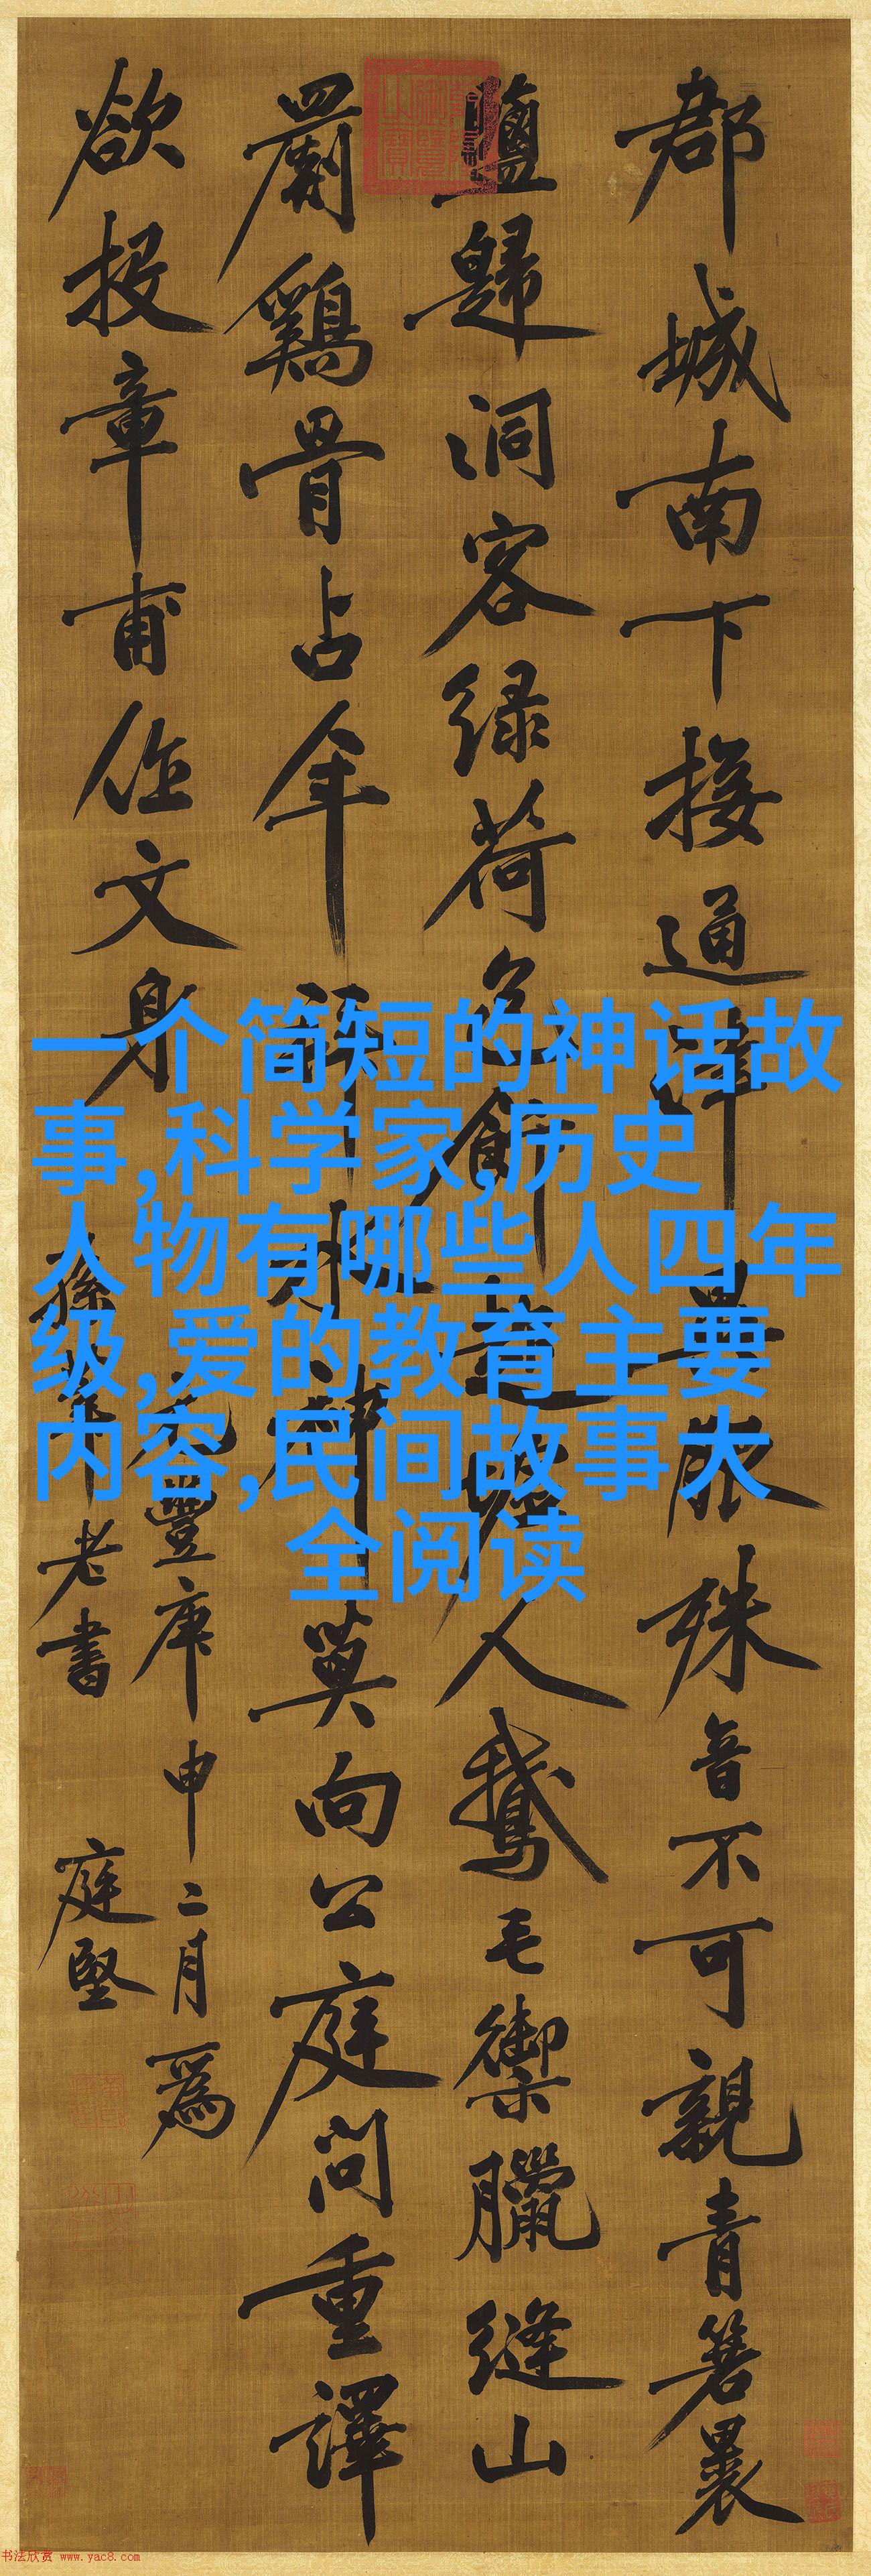 郡城南下接通津異服殊音不可親青箬裹
鹽歸洞客緑荷包飯趁墟人鵝毛禦臘縫山
罽鷄骨占年拜水神莫向公庭問重譯
欲投章甫作文身
元豐庚申二月爲
孫莘老書 庭堅
一个简短的神话故
事,科学家,历史
人物有哪些人四年
级,爱的教育主要
内容,民间故事大
全阅读
书法欣赏 www.yac8.com